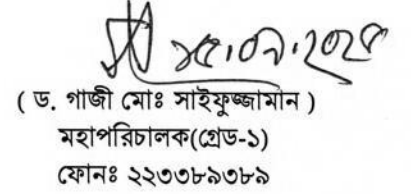 ( ড. গাজী মোঃ সাইফুজ্জামান )
মহাপরিচালক(গ্রেড-১)
ফোনঃ ২২৩৩৮৯৩৮৯